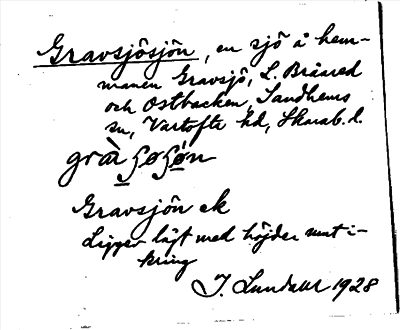 Gravsjösjön, en sjö å hem-
manen Gravsjö, L. Bråared
och Ostbacken, Sandhems
sn, Vartofta hd, Skarab. l.
Gravsjön ek
Ligger lågt med höjder runt i-
kring
J. Lundahl 1928